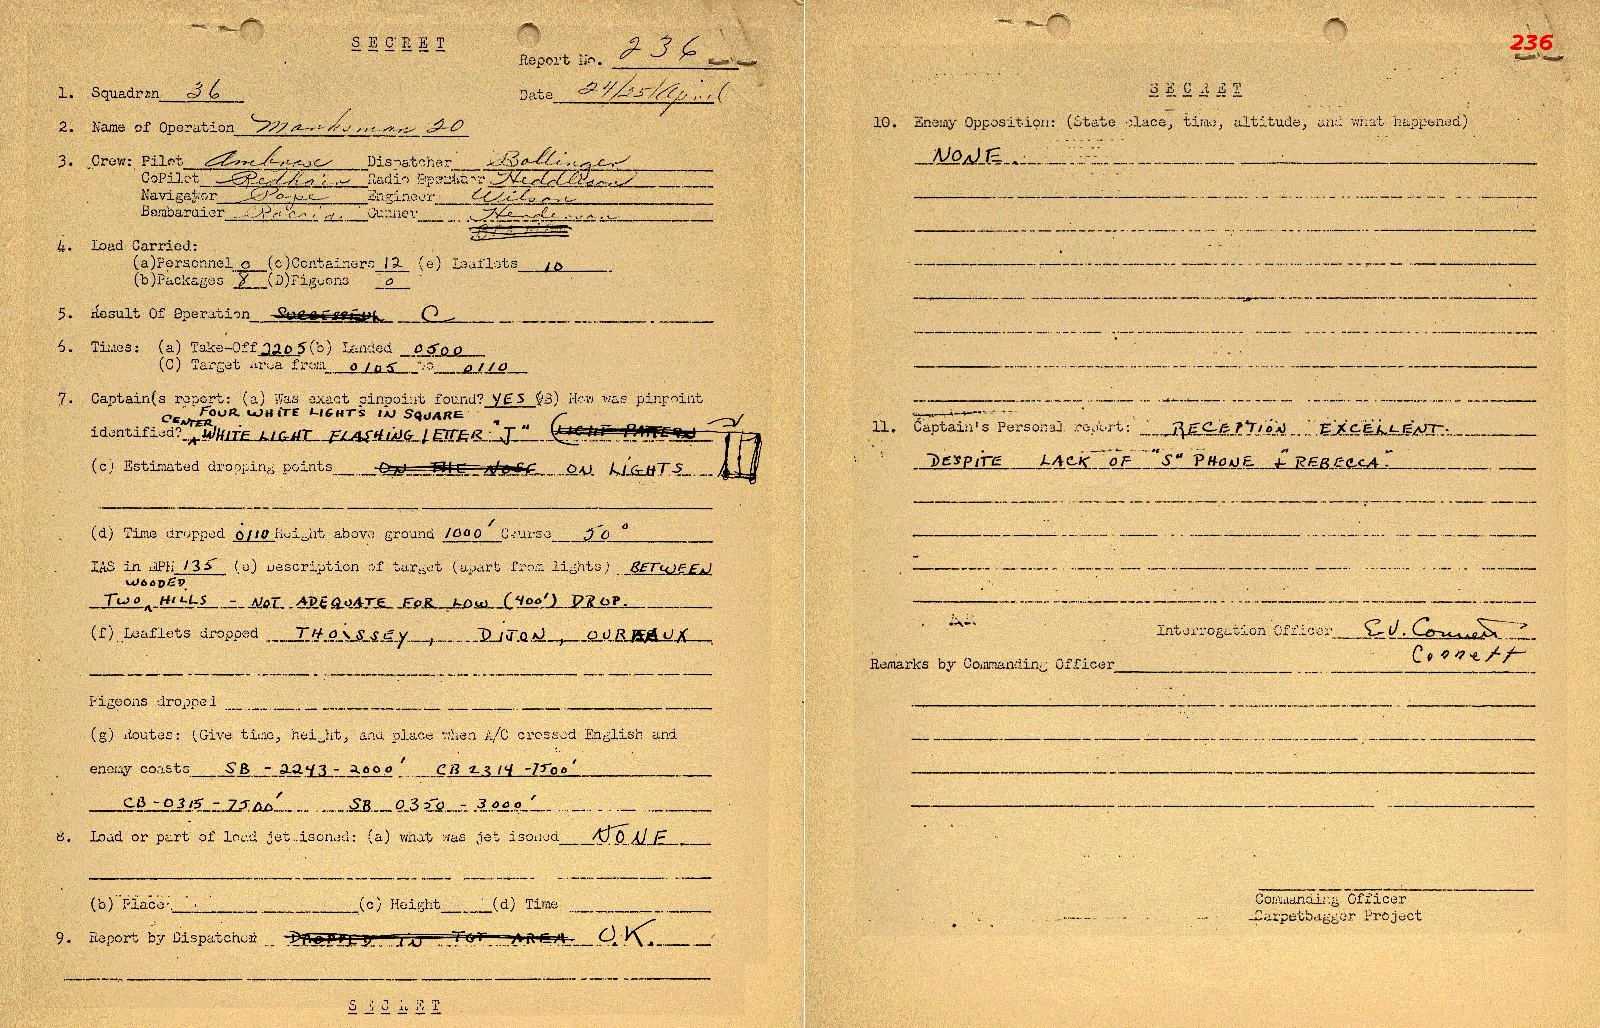 SECRET
Report No. 236
1. Squadron 36 Date 24/25/April
2. Name of Operation Marksman 20
3. Crew: Pilot Ambrose Dispatcher Bollinger
CoPilot Redhair Radio Operator Heddleson
Navigator Pope Engineer Wilson
Bombardier Gunner Henderson
4. Load Carried:
(a)Personnel 0 (c)Containers 12 (e) Leaflets 10
(b)Packages 8 (D)Pigeons 0
5. Result Of Operation SUCCESSFUL C
6. Times: (a) Take-Off 2205 (b) Landed 0500
(C) Target Area from 0105 to 0110
7. Captain(s report: (a) Was exact pinpoint found? YES (B) How was pinpoint
FOUR WHITE LIGHTS IN SQUARE
CENTER
identified? WHITE LIGHT FLASHING LETTER "J" (LIGHT PATTERN
(c) Estimated dropping points ON THE NOSE ON LIGHTS
(d) Time dropped 0110 Height above ground 1000' Course 50°
IAS in MPH 135 (e) Description of target (apart from lights) BETWEEN
WOODED
TWO HILLS - NOT ADEQUATE FOR LOW (400') DROP.
(f) Leaflets dropped THOISSEY, DIJON, OUREAUX
Pigeons dropped
(g) Routes: (Give time, height, and place when A/C crossed English and
enemy coasts SB - 2243 - 2000' CB 2314 - 7500'
CB - 0315 - 7500' SB 0350 - 3000'
8. Load or part of load jettisoned: (a) what was jettisoned NONE
(b) Place (c) Height (d) Time
9. Report by Dispatcher DROPPED IN TGT AREA O.K.
SECRET
236
SECRET
10. Enemy Opposition: (State place, time, altitude, and what happened)
NONE.
11. Captain's Personal report: RECEPTION EXCELLENT.
DESPITE LACK OF "S" PHONE & "REBECCA".
Interrogation Officer E.V. Connett
Connett
Remarks by Commanding Officer
Commanding Officer
Carpetbagger Project